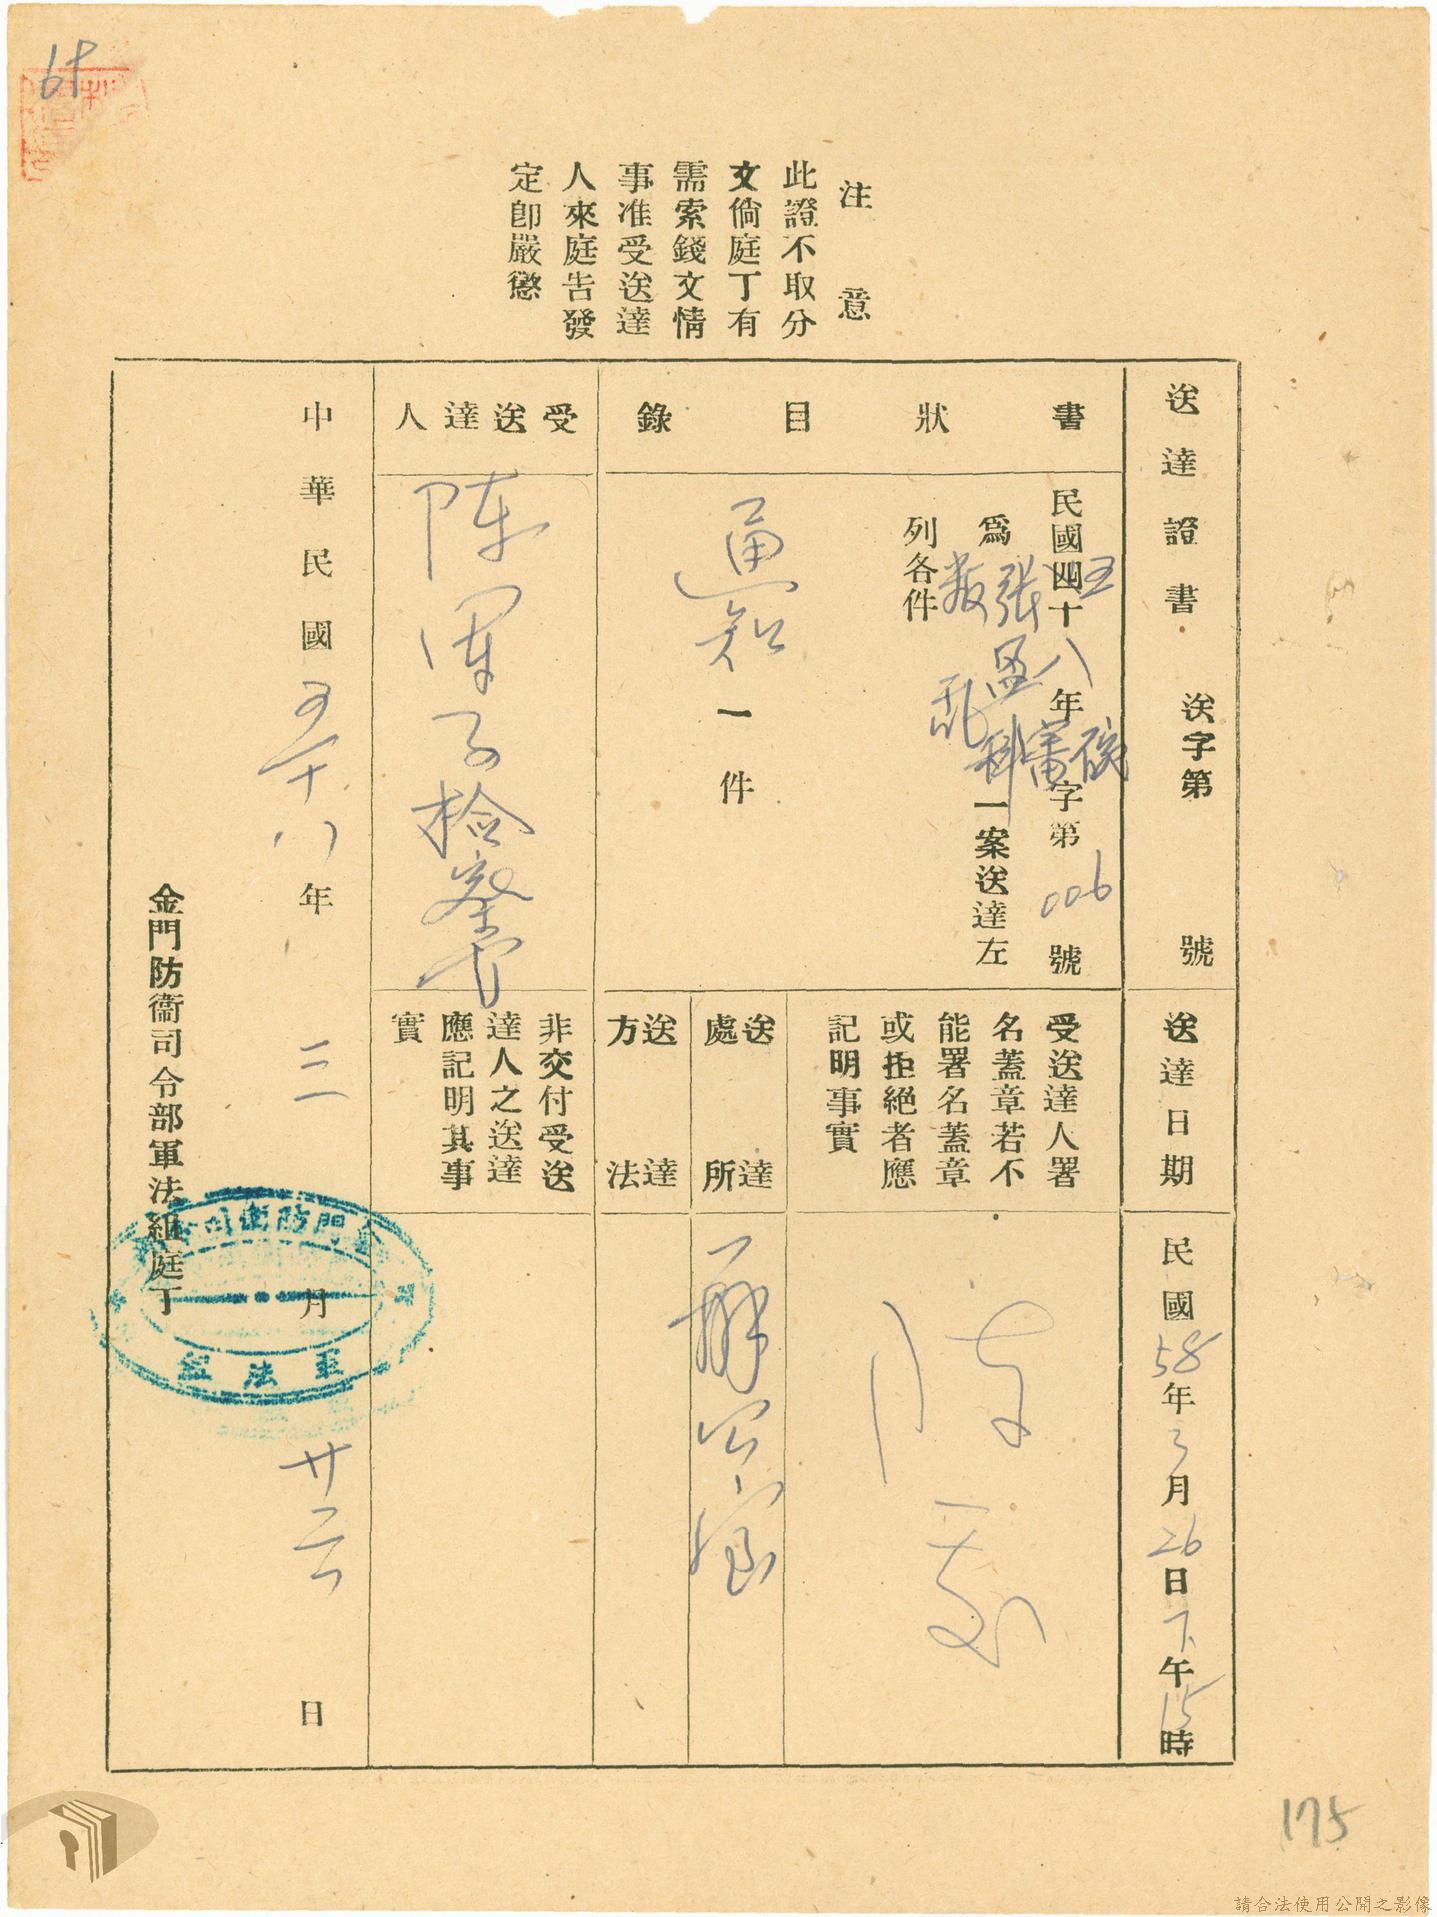 注意
此證不取分
文倘庭丁有
需索錢文情
事准受送達
人來庭告發
定卽嚴懲
送達證書
送字第 號
送達日期
民國58年3月26日下午15時
書狀目錄
民國四十五八年 字第006號
為張盈科叛亂一案送達左
列各件
通知一件
受送達人署
名蓋章若不
能署名蓋章
或拒絕者應
記明事實
送達處所
辦公室
送達方法
受送達人
陳 檢察官
非交付受送
達人之送達
應記明其事
實
中華民國五十八年三月廿六日
金門防衞司令部軍法組庭丁
金門防衛司令部
軍法組
175
請合法使用公開之影像